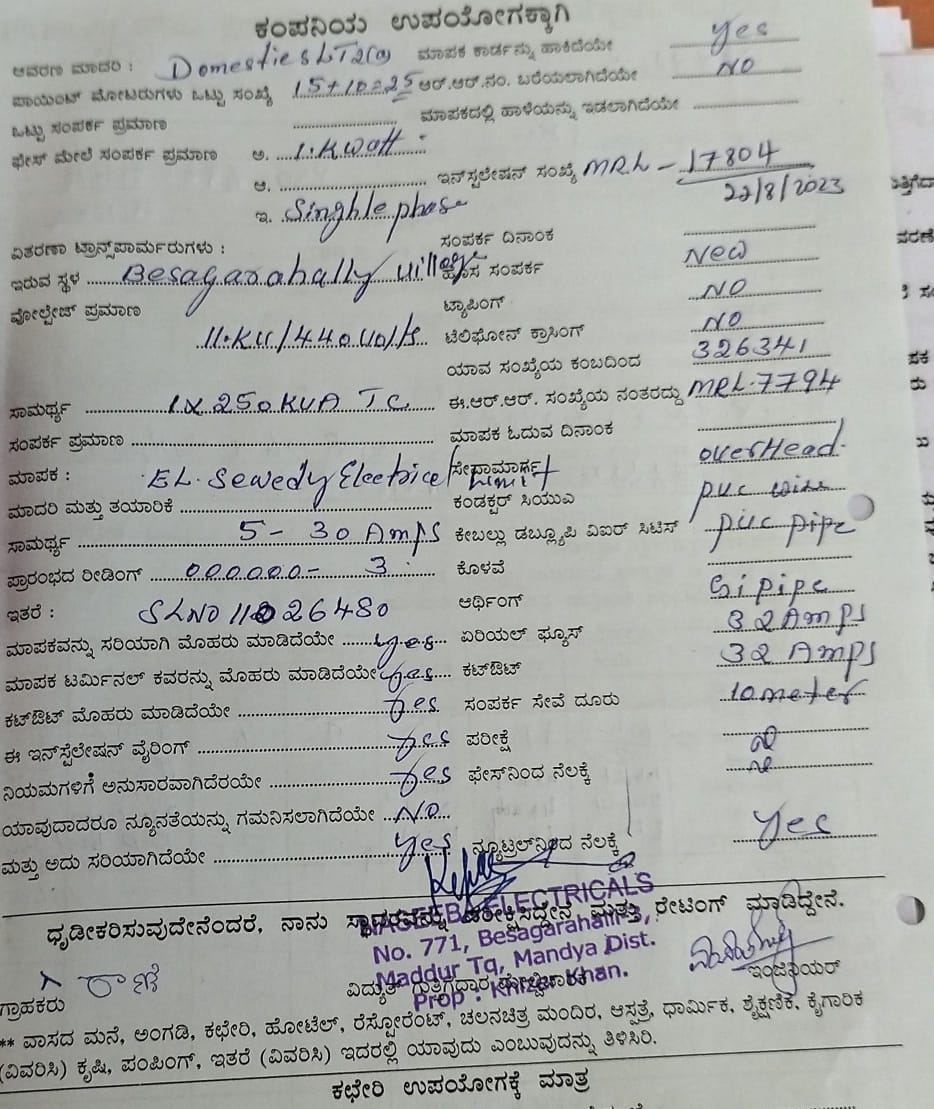 ಕಂಪನಿಯ ಉಪಯೋಗಕ್ಕಾಗಿ
ಆವರಣ ಮಾದರಿ : Domestic LT2(a) ಮಾಪಕ ಕಾರ್ಡನ್ನು ಹಾಕಿದೆಯೇ yes
ಪಾಯಿಂಟ್ ಮೋಟರುಗಳು ಒಟ್ಟು ಸಂಖ್ಯೆ 15+10=25 ಆರ್.ಆರ್.ನಂ. ಬರೆಯಲಾಗಿದೆಯೇ NO
ಒಟ್ಟು ಸಂಪರ್ಕ ಪ್ರಮಾಣ ಮಾಪಕದಲ್ಲಿ ಹಾಳೆಯನ್ನು ಇಡಲಾಗಿದೆಯೇ
ಫೇಸ್ ಮೇಲೆ ಸಂಪರ್ಕ ಪ್ರಮಾಣ ಅ. 1.Kwatt
ಆ. ಇನ್‌ಸ್ಟಲೇಷನ್ ಸಂಖ್ಯೆ MRL - 17804
ಇ. Singhle phase 22/8/2023
ವಿತರಣಾ ಟ್ರಾನ್ಸ್‌ಪಾರ್ಮರುಗಳು : ಸಂಪರ್ಕ ದಿನಾಂಕ
ಇರುವ ಸ್ಥಳ Besagarahally village ಹೊಸ ಸಂಪರ್ಕ New
ವೋಲ್ಟೇಜ್ ಪ್ರಮಾಣ ಟ್ಯಾಪಿಂಗ್ NO
11.KV/440 Volts ಟೆಲಿಫೋನ್ ಕ್ರಾಸಿಂಗ್ NO
ಯಾವ ಸಂಖ್ಯೆಯ ಕಂಬದಿಂದ 326341
ಸಾಮರ್ಥ್ಯ 1X250KVA TC ಈ.ಆರ್.ಆರ್. ಸಂಖ್ಯೆಯ ನಂತರದ್ದು MRL.7794
ಸಂಪರ್ಕ ಪ್ರಮಾಣ ಮಾಪಕ ಓದುವ ದಿನಾಂಕ
ಮಾಪಕ : EL. Sewedy Electrical Limit ಸೇವಾಮಾರ್ಗ overHead.
ಮಾದರಿ ಮತ್ತು ತಯಾರಿಕೆ ಕಂಡಕ್ಟರ್ ಸಿಯುಎ pvc wire
ಸಾಮರ್ಥ್ಯ 5 - 30 Amps ಕೇಬಲ್ಲು ಡಬ್ಲ್ಯೂಪಿ ವಿಐರ್ ಸಿಟಿಸ್ pvc pipe
ಪ್ರಾರಂಭದ ರೀಡಿಂಗ್ 000000 - 3 ಕೊಳವೆ
ಇತರೆ : SLNO ಆರ್ಥಿಂಗ್ Gi pipe
ಮಾಪಕವನ್ನು ಸರಿಯಾಗಿ ಮೊಹರು ಮಾಡಿದೆಯೇ yes ಏರಿಯಲ್ ಫ್ಯೂಸ್ 32 Amps
ಮಾಪಕ ಟರ್ಮಿನಲ್ ಕವರನ್ನು ಮೊಹರು ಮಾಡಿದೆಯೇ yes ಕಟ್‌ಔಟ್ 32 Amps
ಕಟ್‌ಔಟ್ ಮೊಹರು ಮಾಡಿದೆಯೇ yes ಸಂಪರ್ಕ ಸೇವೆ ದೂರು 10 meter
ಈ ಇನ್‌ಸ್ಟೆಲೇಷನ್ ವೈರಿಂಗ್ yes ಪರೀಕ್ಷೆ
ನಿಯಮಗಳಿಗೆ ಅನುಸಾರವಾಗಿದೆರಯೇ yes ಫೇಸ್‌ನಿಂದ ನೆಲಕ್ಕೆ
ಯಾವುದಾದರೂ ನ್ಯೂನತೆಯನ್ನು ಗಮನಿಸಲಾಗಿದೆಯೇ NO
ಮತ್ತು ಅದು ಸರಿಯಾಗಿದೆಯೇ yes ನ್ಯೂಟ್ರಲ್‌ನಿಂದ ನೆಲಕ್ಕೆ yes
ಧೃಡೀಕರಿಸುವುದೇನೆಂದರೆ, ನಾನು ಸ್ಥಾವರವನ್ನು ಪರೀಕ್ಷಿಸಿದ್ದೇನೆ ಮತ್ತು ರೇಟಿಂಗ್ ಮಾಡಿದ್ದೇನೆ.
ELECTRICALS
No. 771, Besagarahalli-3,
Maddur Tq, Mandya Dist.
Prop : Khizer Khan.
ಗ್ರಾಹಕರು ವಿದ್ಯುತ್ ಗುತ್ತಿಗೆದಾರ ಇಂಜಿನಿಯರ್
** ವಾಸದ ಮನೆ, ಅಂಗಡಿ, ಕಛೇರಿ, ಹೋಟೆಲ್, ರೆಸ್ಟೋರೆಂಟ್, ಚಲನಚಿತ್ರ ಮಂದಿರ, ಆಸ್ಪತ್ರೆ, ಧಾರ್ಮಿಕ, ಶೈಕ್ಷಣಿಕ, ಕೈಗಾರಿಕ
(ವಿವರಿಸಿ) ಕೃಷಿ, ಪಂಪಿಂಗ್, ಇತರೆ (ವಿವರಿಸಿ) ಇದರಲ್ಲಿ ಯಾವುದು ಎಂಬುವುದನ್ನು ತಿಳಿಸಿರಿ.
ಕಛೇರಿ ಉಪಯೋಗಕ್ಕೆ ಮಾತ್ರ